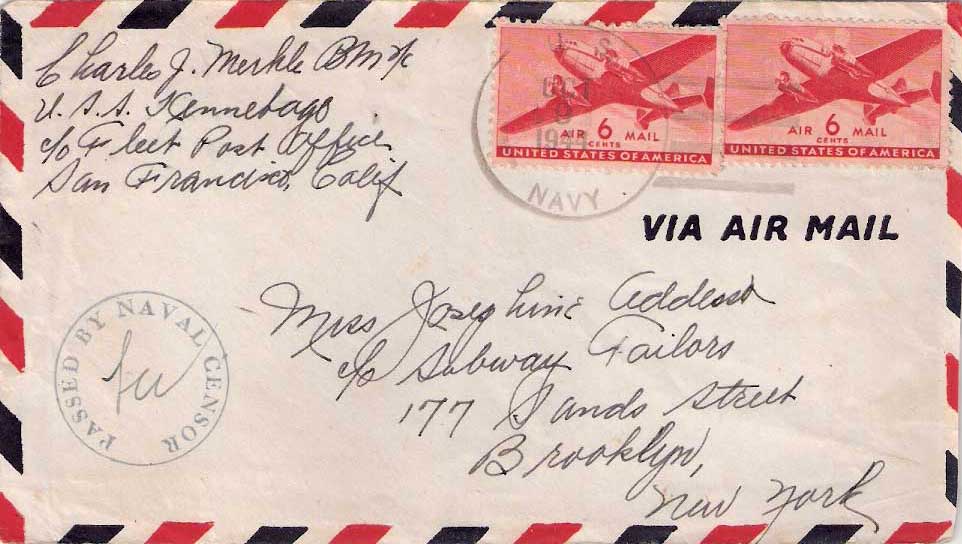 Charles J. Merkle BM 2/c
U.S.S. Kennebago
c/o Fleet Post Office
San Francisco, Calif
OCT
1944
NAVY
AIR 6 MAIL
CENTS
UNITED STATES OF AMERICA
AIR 6 MAIL
CENTS
UNITED STATES OF AMERICA
VIA AIR MAIL
PASSED BY NAVAL CENSOR
Miss Josephine Addesso
c/o Subway Tailors
177 Sands Street
Brooklyn,
New York